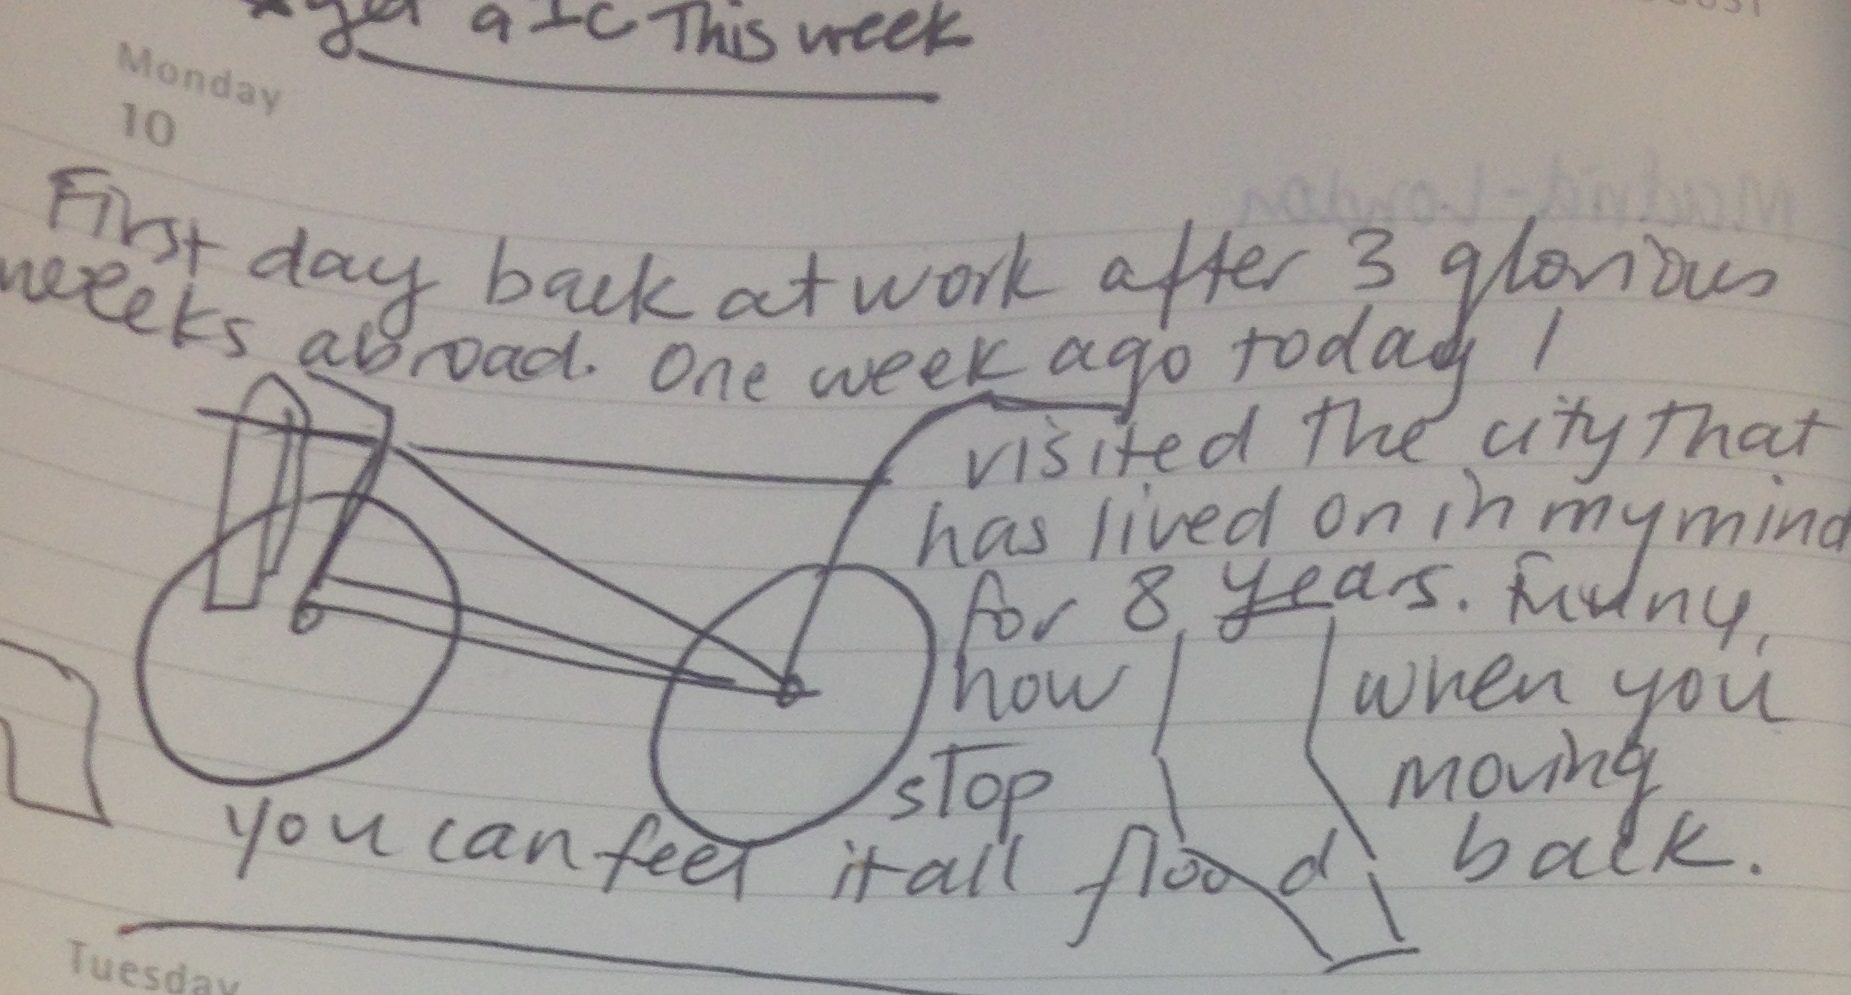 a IC This week
Monday
10
First day back at work after 3 glorious
weeks abroad. One week ago today I
visited the city that
has lived on in my mind
for 8 years. Funny,
how when you
stop moving
you can feel it all flood back.
Tuesday
Madrid-London